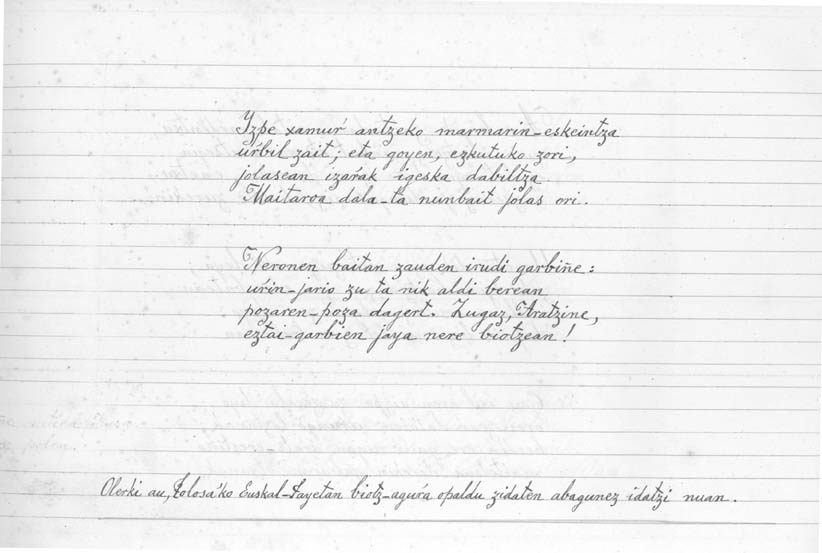 Izpe xamuŕ antzeko marmarin-eskeintza
uŕbil zait; eta goyen, ezkutuko zori,
jolasean izaŕak igeska dabiltza
Maitaroa dala-ta nunbait jolas ori.
Neronen baitan zauden irudi garbiñe:
uŕin-jario zu ta nik aldi berean
pozaren-poza dagert. Zugaz, Aratzine,
eztai-garbien jaya nere biotzean!
Olerki au, Tolosa'ko Euskal-Jayetan biotz-aguŕa opaldu zidaten abagunez idatzi nuan.